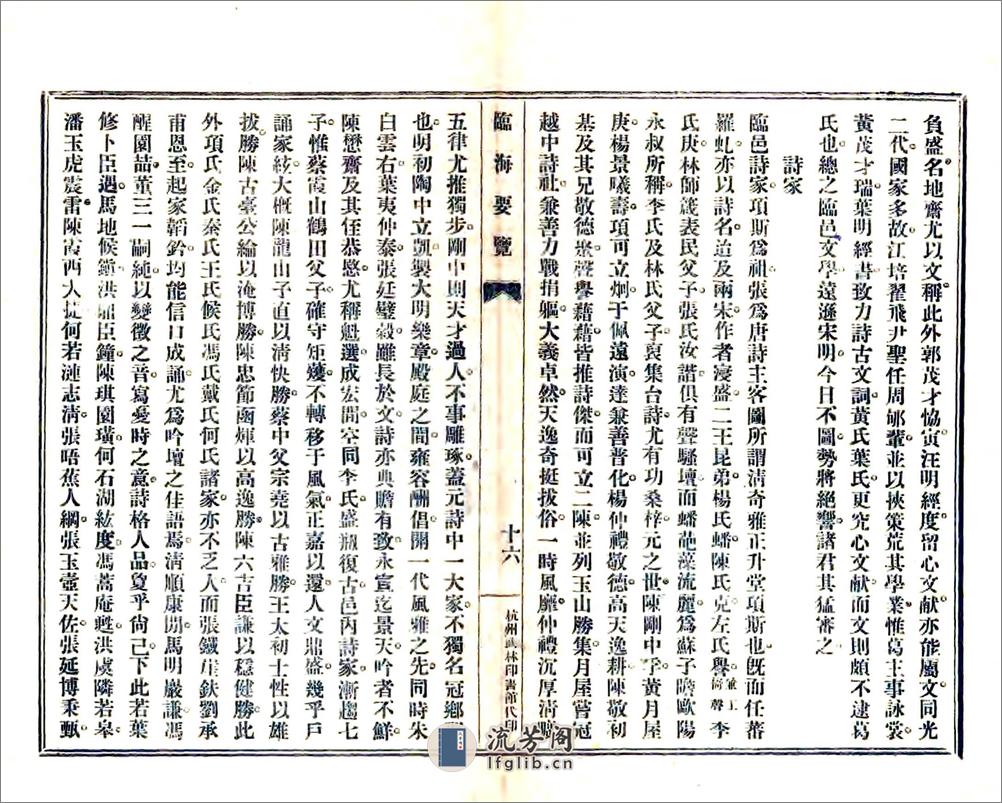 負盛名地齋尤以文稱此外郭茂才協寅汪明經度留心文獻亦能屬文同光
二代國家多故江培翟飛尹聖任周郇輩並以挾策荒其學業惟葛主事詠裳
黃茂才瑞葉明經書致力詩古文詞黃氏葉氏更究心文献而文則頗不逮葛
氏也總之臨邑文學遠遜宋明今日不圖勢將絕響諸君其猛審之
詩家
臨邑詩家項斯爲祖張爲唐詩主客圖所謂清奇雅正升堂項斯也旣而任蕃
羅虬亦以詩名迨及兩宋作者寖盛二王昆弟楊氏蟠陳氏克左氏譽李
氏庚林師箴表民父子張氏汝諧俱有聲騷壇而蟠葩藻流麗爲蘇子瞻歐陽
永叔所稱李氏及林氏父子裒集台詩尤有功桑梓元之世陳剛中孚黃月屋
庚楊景曦壽項可立炯于佩遠演達兼善普化楊仲禮敬德高天逸耕陳敬初
基及其兄敬德聚聲譽藉藉皆推詩傑而可立二陳並列玉山勝集月屋嘗冠
越中詩社兼善力戰捐軀大義卓然天逸奇挺拔俗一時風靡仲禮沉厚清
臨海要覽
十六
杭州武林印書館代印
五律尤推獨步剛中則天才過人不事雕琢蓋元詩中一大家不獨名冠鄉
也明初陶中立凱製大明樂章殿庭之間雍容酬倡開一代風雅之先同時朱
白雲右葉夷仲泰張廷璧榖雖長於文詩亦典贍有致永宣迄景天吟者不鮮
陳懋齋及其侄恭愍尤稱魁選成宏間空同李氏盛復古邑內詩家漸趨七
子惟蔡霞山鶴田父子確守矩矱不轉移于風氣正嘉以還人文鼎盛幾乎戶
誦家絃大概陳龍山子直以清快勝蔡中父宗堯以古雅勝王太初士性以雄
拔勝陳古臺公綸以淹博勝陳忠節函煇以高逸勝陳六吉臣謙以穩健勝此
外項氏金氏秦氏王氏候氏馮氏戴氏何氏諸家亦不乏人而張鐵崖欽劉承
甫恩至起家韜鈐均能信口成誦尤爲吟壇之佳語焉清順康閒馬明巖謙馮
醒園喆董三一嗣純以變徵之音寫愛時之意詩格人品夐乎尙已下此若葉
修卜臣遇馬地候鎖洪鼎臣鐘陳琪園璜何石湖紘度馮蒿庵甦洪虞隣若皋
潘玉虎震雷陳霞西大捉何若漣志清張唔蕉人綱張玉壺天佐張延博秉甄
流芳阁
lfglib.cn